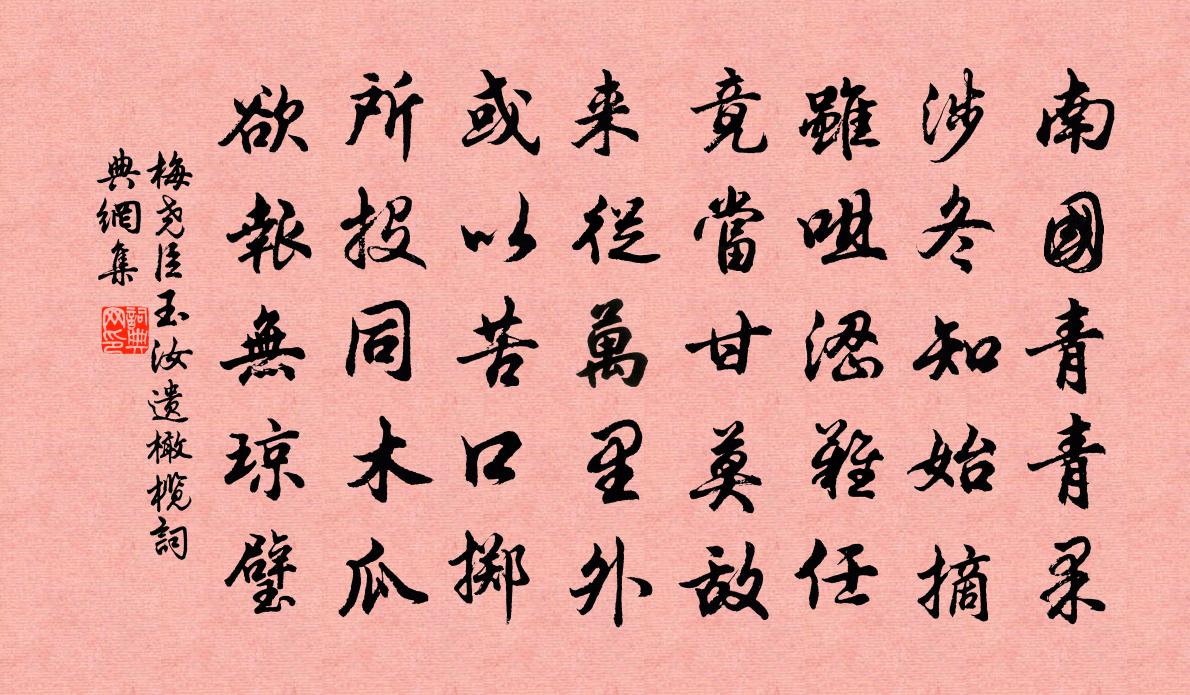 南國青青果
涉冬知始摘
雖咀澀難任
竟當甘莫敌
来從萬里外
或以苦口掷
所投同木瓜
欲報無琼璧
梅尧臣玉汝遗橄榄詞
典網集
詞典网印